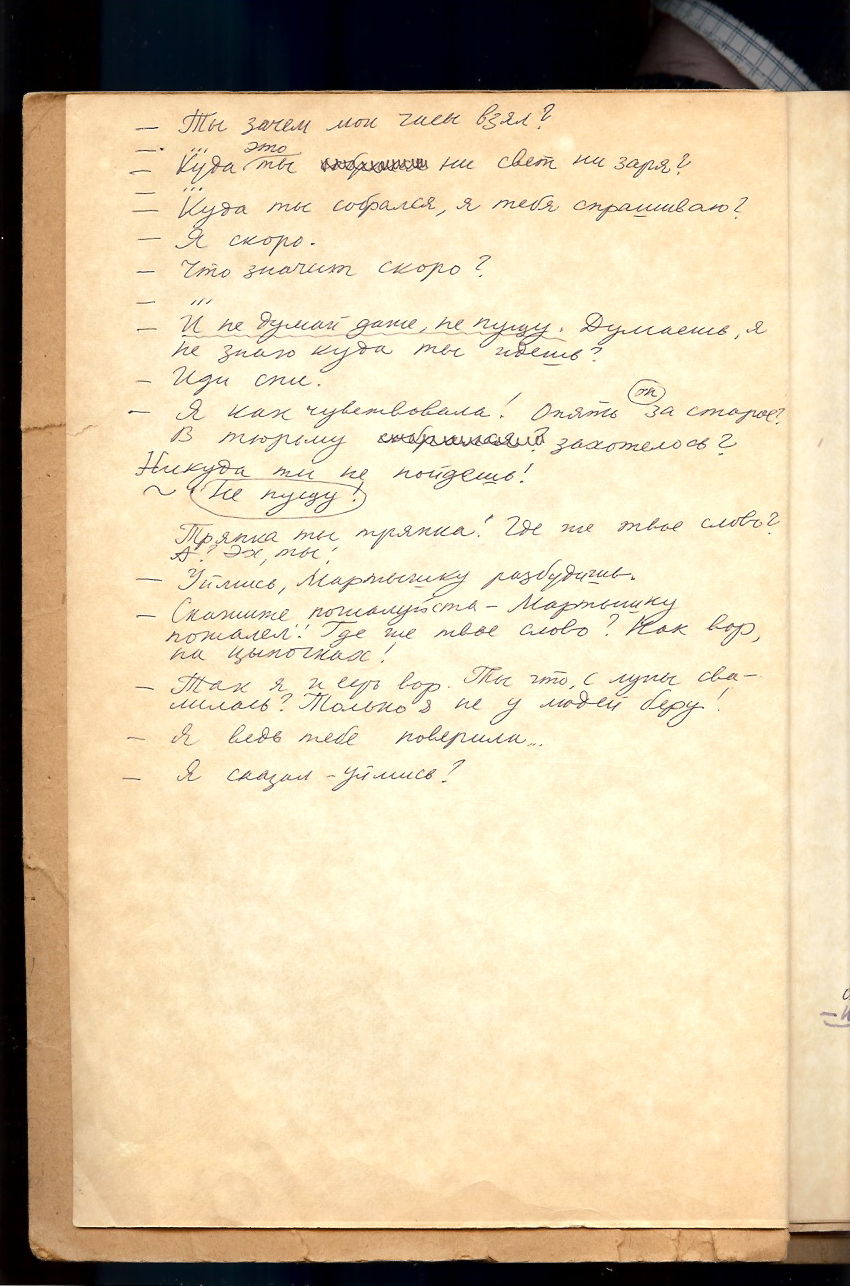 — Ты зачем мои часы взял?
— ...
это
— Куда ты ни свет ни заря?
— ...
— Куда ты собрался, я тебя спрашиваю?
— Я скоро.
— Что значит скоро?
— ...
— И не думай даже, не пущу. Думаешь, я
не знаю куда ты идёшь?
— Иди спи.
— Я как чувствовала! Опять за старое?
В тюрьму захотелось?
Никуда ты не пойдешь!
~ Не пущу!
Тряпка ты тряпка! Где же твое слово?
А? Эх, ты!
— Уймись, Мартышку разбудишь.
— Скажите пожалуйста – Мартышку
пожалел! Где же твое слово? Как вор,
на цыпочках!
— Так я и есть вор. Ты что, с луны сва-
лилась? Только я не у людей беру!
— Я ведь тебе поверила...
— Я сказал – уймись?